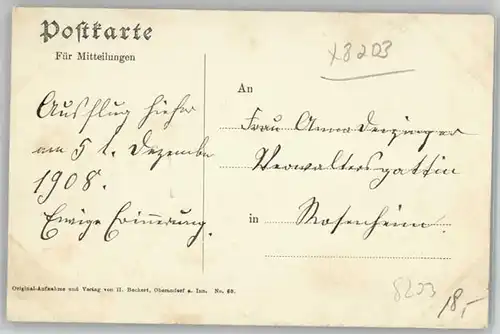 Postkarte
Für Mitteilungen
x8203
An
Ausflug hieher
am 5 t. Dezember
1908.
Ewige Erinnerung.
Frau Anna
Verwaltersgattin
in Rosenheim.
Original-Aufnahme und Verlag von H. Bechert, Oberaudorf a. Inn. No. 69.
8203
18,-